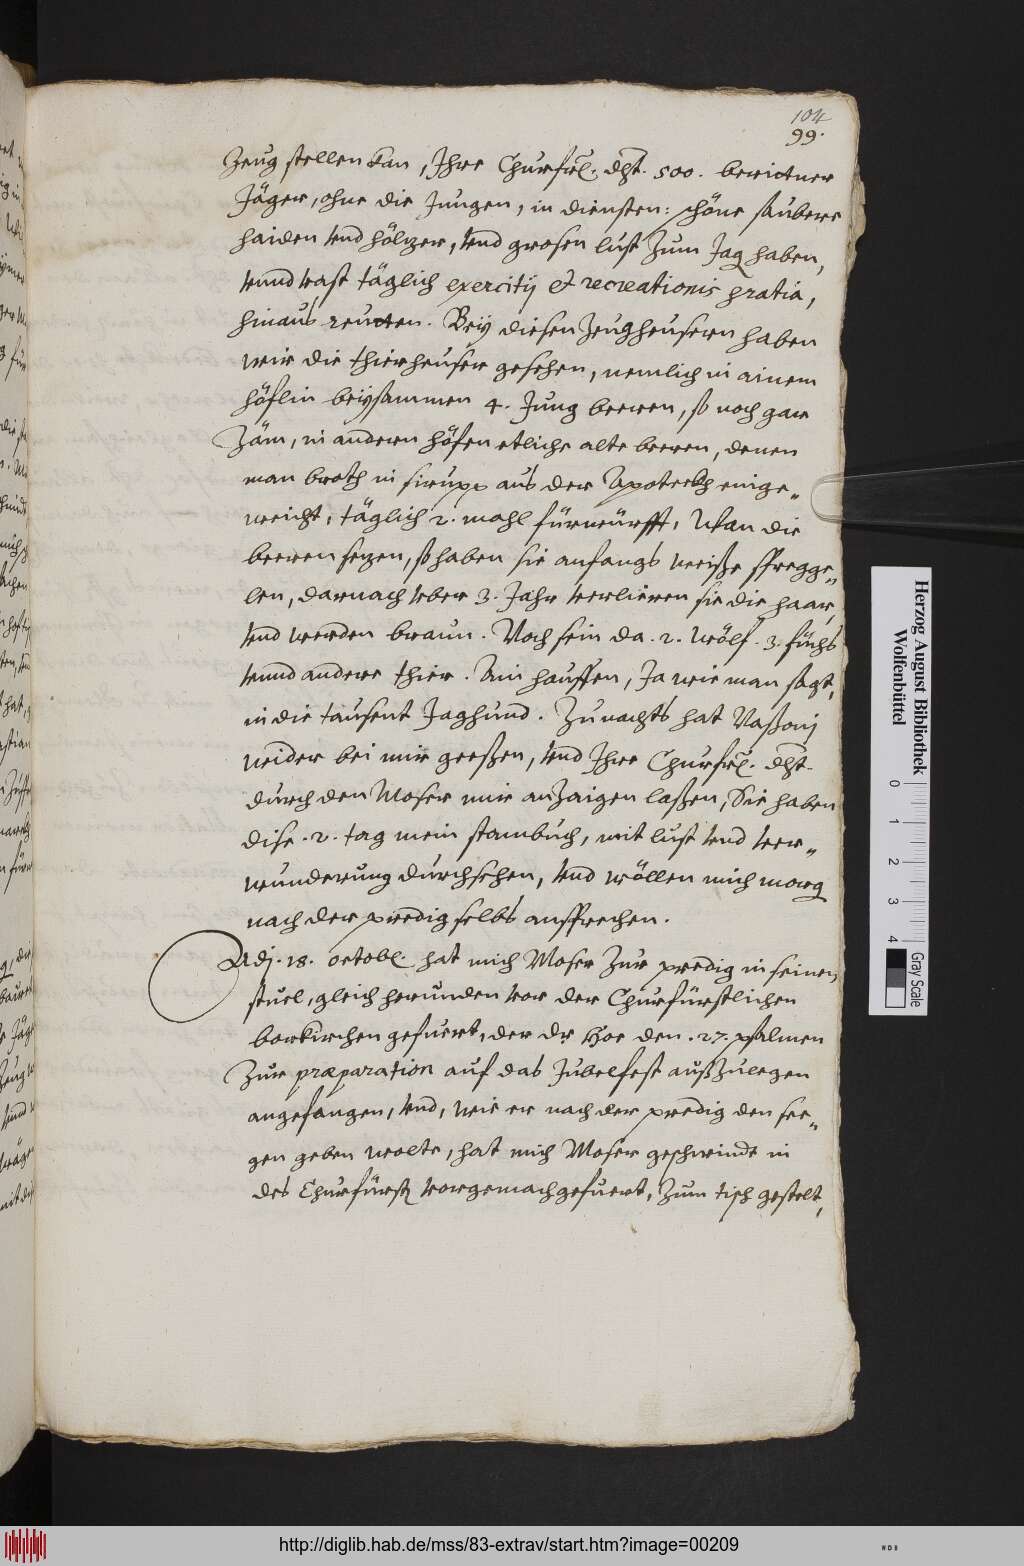 104
99.
Zeug stellen kan, Ihre Churfrl. dht. 500. berittner
Jäger, ohne die Jungen, in diensten: schöne saubere
haiden vnd höltzer, vnd grosen lust zum Jag haben,
vnnd vast täglich exercitij et recreationis gratia,
hinaus reutten. Beÿ diesen Zeugheusern haben
wir die thierheuser gesehen, nemlich in ainem
höflin beÿsammen 4. Jung beeren, so noch gar
zäm, in andern höfen etliche alte beeren, denen
man broth in sirupp aus der Apoteckh einge„
weicht, täglich 2. mahl fürwürfft, Wan die
beeren setzen, so haben sie anfangs weiße spregge„
len, darnach vber 3. Jahr verlieren sie die haar,
vnd werden braun. Noch sein da. 2. wölf. 3. füchs
vnnd andere thier. Ain hauffen, Ja wie man sagt,
in die tausent Jaghund. Zu nachts hat Naßonj
wider bei mir geeßen, vnd Ihre Churfrl. dht.
durch den Moser mir anzaigen laßen, Sie haben
dise. 2. tag mein stambuch, mit lust vnd ver„
wunderung durchsehen, vnd wöllen mich morg
nach der predig selbs ansprechen.
Adj. 18. octobl. hat mich Moser zur predig in seinen
stuel, gleich herunden vor der Churfürstlichen
borkirchen gefuert, der Dr Hoe den. 27. psalmen
zur præparation auf das Jubelfest außzulegen
angefangen, vnd, wie er nach der predig den see„
gen geben wolte, hat mich Moser geschwindt in
des Churfürst vorgemach gefuert, zum tisch gestelt,
Herzog August Bibliothek
Wolfenbüttel
0 1 2 3 4
Gray Scale
http://diglib.hab.de/mss/83-extrav/start.htm?image=00209